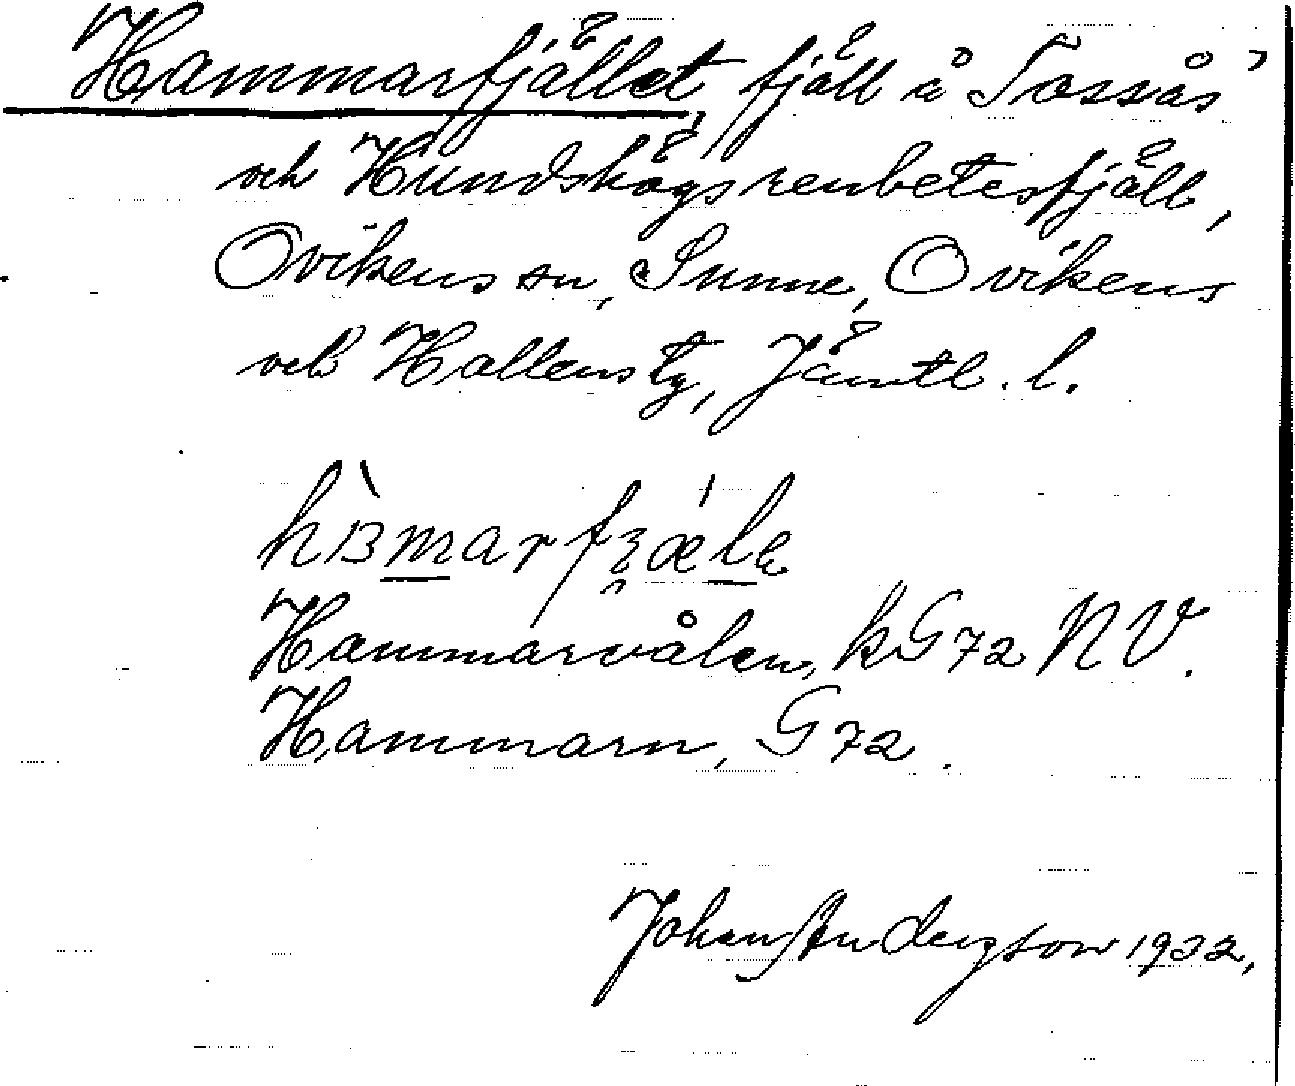 Hammarfjället, fjäll å Tossås
och Hundshögs renbetesfjäll,
Ovikens sn, Sunne, Ovikens
och Hallens tg, Jämtl. l.
Hammarvålen, kG72 NV.
Hammarn, G72.
Johan Anderzson 1932,